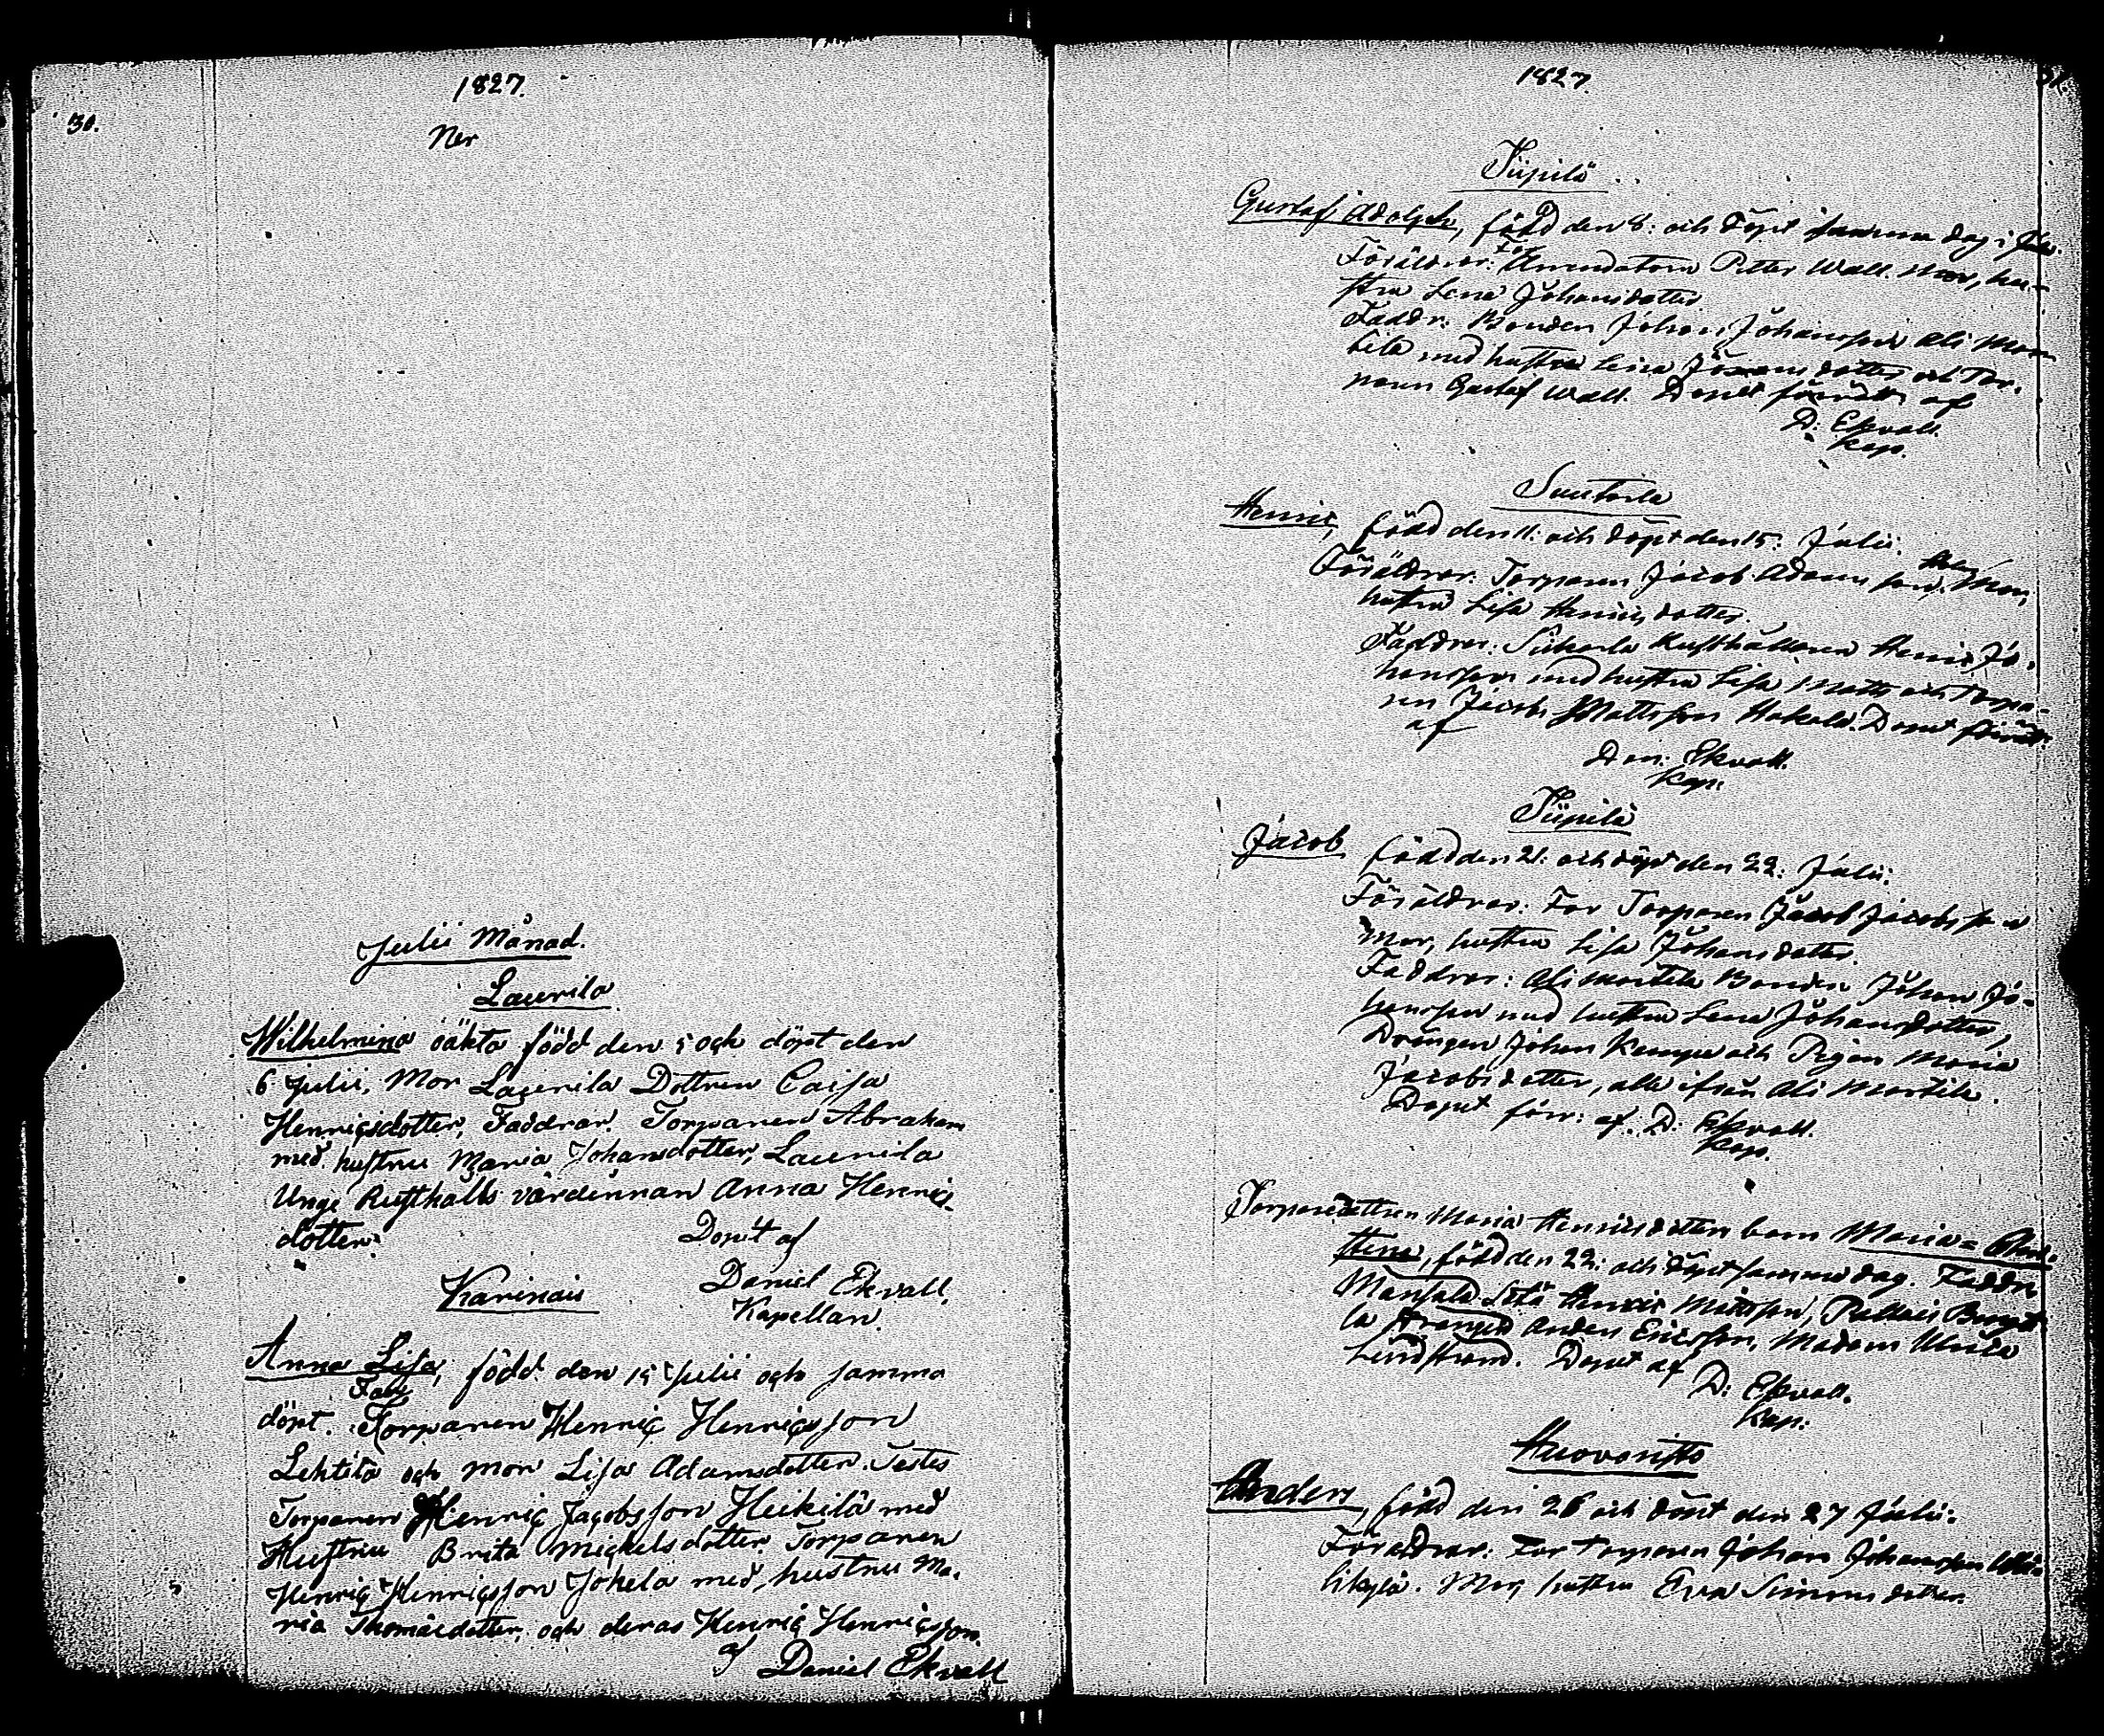 1827.
30.
Ner
Julii Månad.
Laurila
Wilhelmina oäkta född den 5 och döpt den
6 Julii, Mor Laurila Dottren Caisa
Henricsdotter, Faddrar. Torparen Abraham
med hustru Maria Johansdotter, Laurila
Unge Rusthålls värdinnan Anna Henrics-
dotter.
Döpt af
Daniel Ekvall.
Kapellan.
Karinais
Anna Lisa, född den 15 Julii och samma
döpt. Torparen Henric Henricsson
Lehtitä och mor Lisa Adamsdotter. Testes
Torparen Henric Jacobsson Heikilä med
Hustru Brita Michelsdotter, Torparen
Henric Henricsson Jokela med hustru Ma-
ria Thomasdotter, och deras Henric Henricsson.
af Daniel Ekvall
1827.
Tiipilä
Gustaf Adolph, född den 8: och döpt samma dag i
Föräldrar: Far Arrendatorn Petter Wall. Mor, hu-
stru Lena Johansdotter
Faddr: Bonden Johan Johansson Ali Mar-
tila med hustru Lena dotter och
Gustaf Wall. Döpt förrätt: af
D: Ekvall.
Kap.
Suutarla
Henric, född den 11: och döpt den 15: Julii.
Föräldrar: Torparen Jacob Adamsson. Mor,
hustru Lisa Henricsdotter.
Faddrar: Rusthållaren Henric Jo-
hansson med hustru Lisa Matts och Torpa-
ren Jacob Mattsson Hakala. Dopet förrätt:
af
Dan: Ekvall.
Kap.
Tiipilä
Jacob född den 21: och döpt den 22: Julii:
Föräldrar: Far Torparen Jacob Jacobsson
Mor, hustru Lisa Johansdotter.
Faddrar: Ali Martila Bonden Johan Jo-
hansson med hustru Lena Johansdotter,
Drängen Johan och Pigan Maria
Jacobsdotter, alla ifrån Ali Martila.
Dopet förr: af. D: Ekvall.
Kap.
Torparedottren Maria Henricsdotters barn Maria
Stina, född den 22: och döpt samma dag. Faddr:
Henric Mattsson,
Anders Ericsson, Madam Ulrica
Lindstrand. Dopet af
D: Ekvall.
Kap:
Huovaristo
Anders, född den 26 och döpt den 27 Julii:
Föräldrar: Far torparen Johan Johansson
kylä. Mor, hustru Eva Simonsdotter.